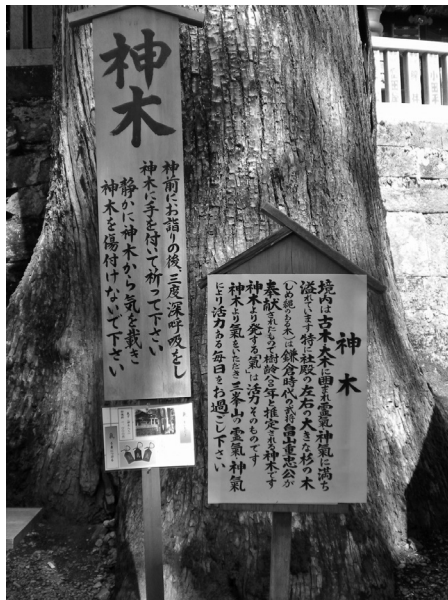 神木
神前にお詣りの後、三度深呼吸をし
神木に手を付いて祈って下さい
静かに神木から気を戴き
神木を傷付けないで下さい
神木
境内は古木大木に囲まれ霊氣・神氣に満ち
溢れています特に社殿の左右の大きな杉の木
(しめ縄のある木)は鎌倉時代の武将畠山重忠公が
奉献されたもので樹齢八〇〇年と推定される神木です
神木より発する「氣」は活力そのものです
神木より氣をいただき三峯山の霊氣・神氣
により活力ある毎日をお過ごし下さい